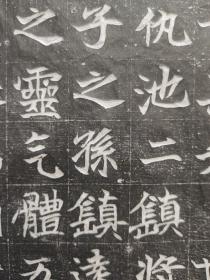 仇池二鎮將
子之孫鎮遠
之靈气體五